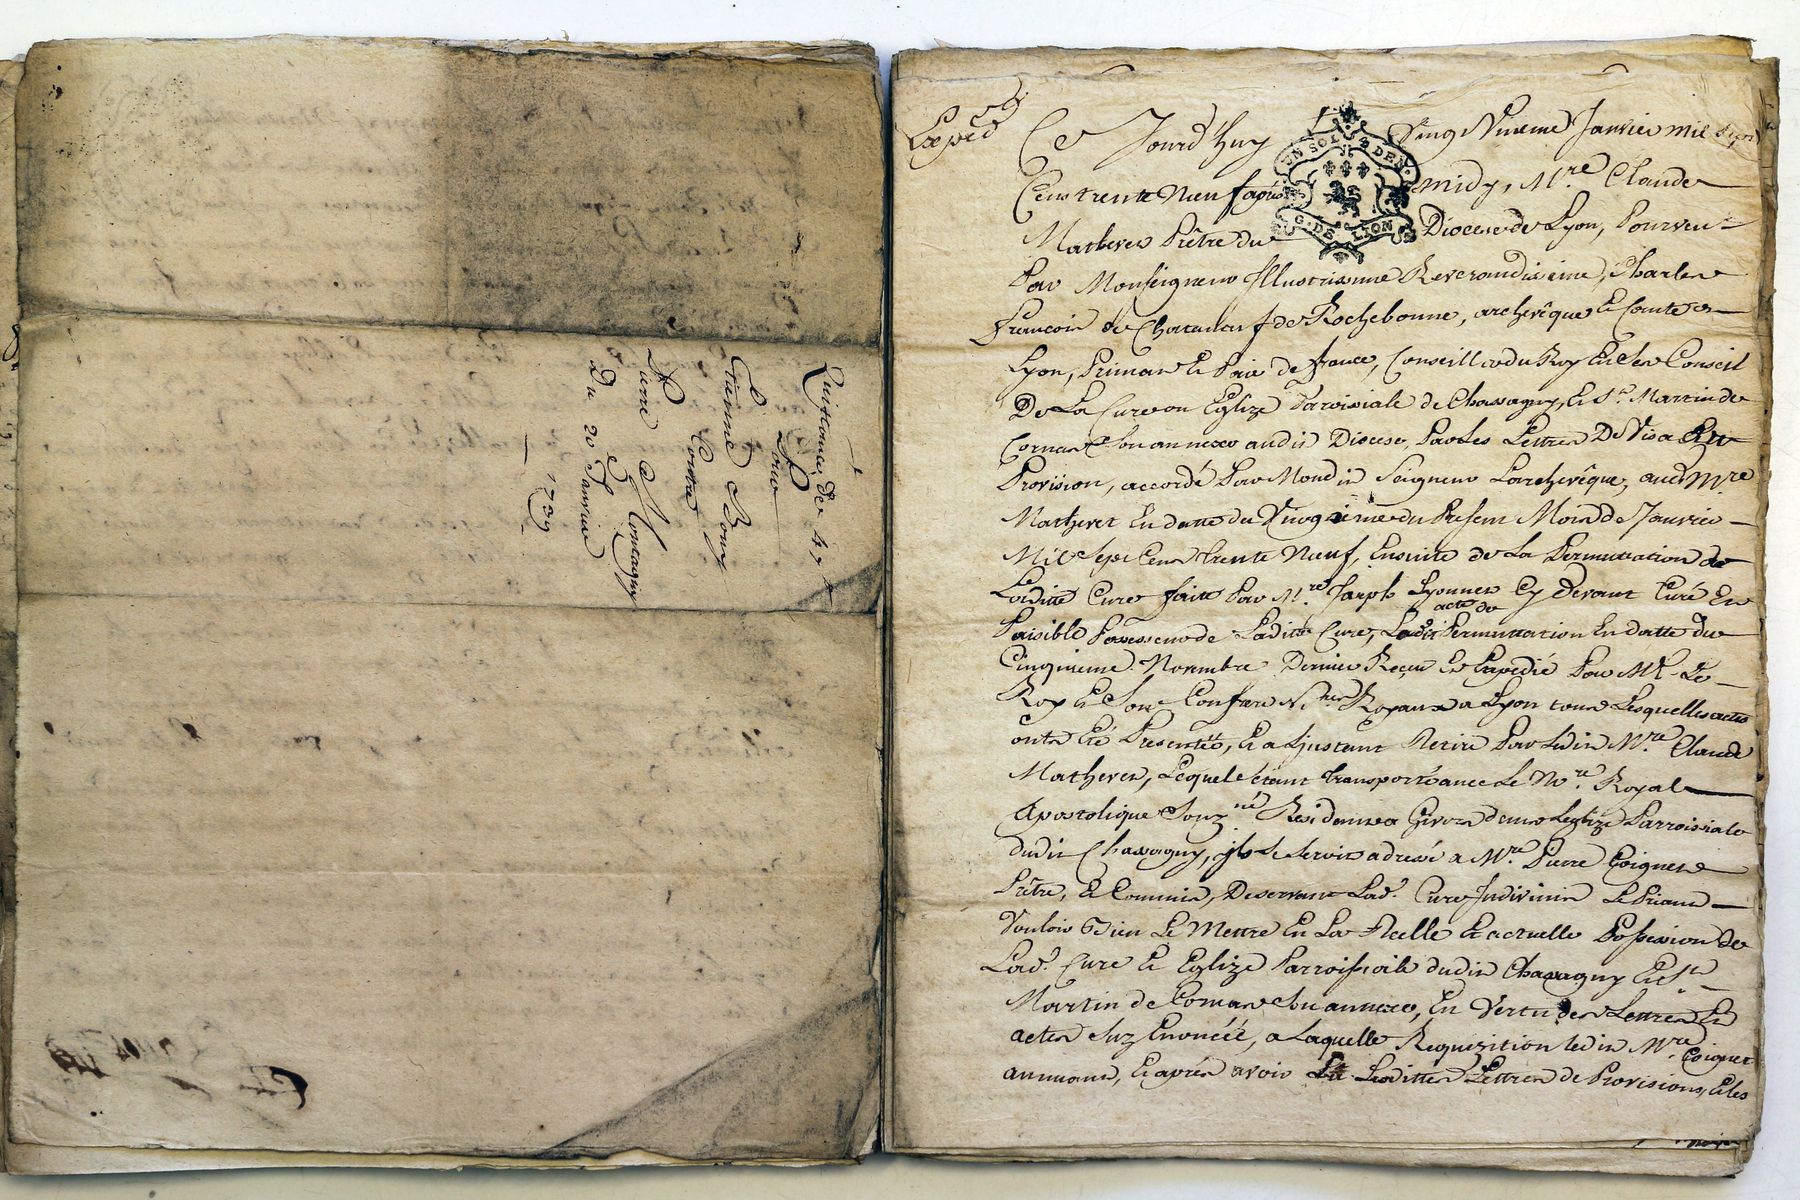 Quittance de 47 ᵗᵗ
Pour
Etienne Bony
Contre
Pierre Montagny
Du 20 Janvier
1739
Exped
UN SOL 2 DEN.
G. DE LION
Ce Jourd'huy Vingt Unieme Janvier mil sept
Cens trente Neuf apres midy, Mre Claude
Mathever Prêtre du Diocese de Lyon, Pourveu
Par Monseigneur Illustrissime Reverandissime, Charles
François de Chateauneuf de Rochebonne, archevêque et Comte de
Lyon, Primat et Pair de france, Conseiller du Roy En ses Conseil
De La Cure ou Eglize Parroissiale de Chassagny, Et St. Martin de
Cornas Son annexe audit Diocese, Par Les Lettres De Visa Et
Provision, accordé Par Mondit Seigneur Larchevêque, audt Mre
Mathevet En datte du Vingtieme du Present Mois de Janvier
Mil Sept Cens trente Neuf, Ensuite de La Permuttation de
Laditte Cure faite Par Mre Joseph Lyonnet Cy devant Curé Et
Paisible Possesseur de Laditte Cure, Ledit acte de Permuttation En datte du
Cinquieme Novembre Dernier Reçeu Et Expedié Par Me Le
Roy Et Son Confrere Nres Royaux a Lyon tous Lesquelles actes
onts Eté Presentéz, Et a Linstant Retiré Par Ledit Mre Claude
Mathever, Lequel Setant transporté avec Le Nre Royal
Apostolique Souzné Residant a Givors dans Leglize Parroissiale
dudit Chassagny, Il Se Seroit adressé a Mre Pierre Coignet
Prêtre, Et Commis, Deservant Lad. Cure Le Priant
Vouloir Bien Le Mettre En La Reelle Et actuelle Possession de
Lad. Cure Et Eglize Parroissiale dudit Chassagny Et St
Martin de Cornas Son annexe, En Vertu des Lettres Et
actes Suz Enoncéé, a Laquelle Requizition ledit Mre Coignet
annuant, Et après avoir Lû Lesdittes Lettres de Provisions, Et les